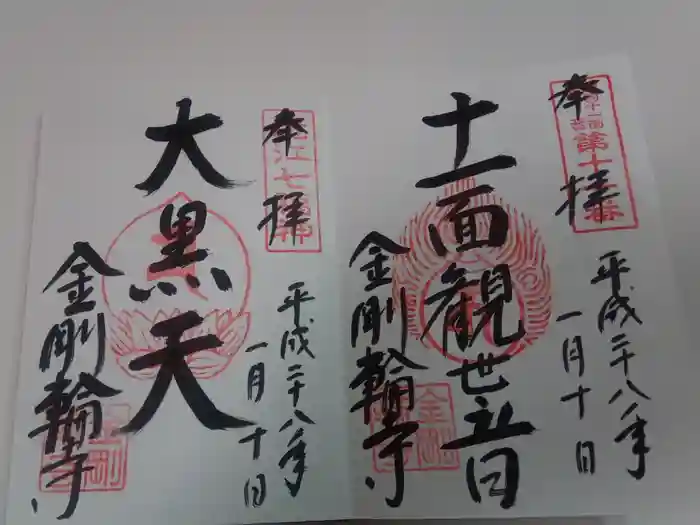 奉拝
第十
平成二十八年
一月十日
十一面観世音
金剛輪寺
金剛
奉拝
近江七福神
平成二十八年
一月十日
大黒天
金剛輪寺
金剛